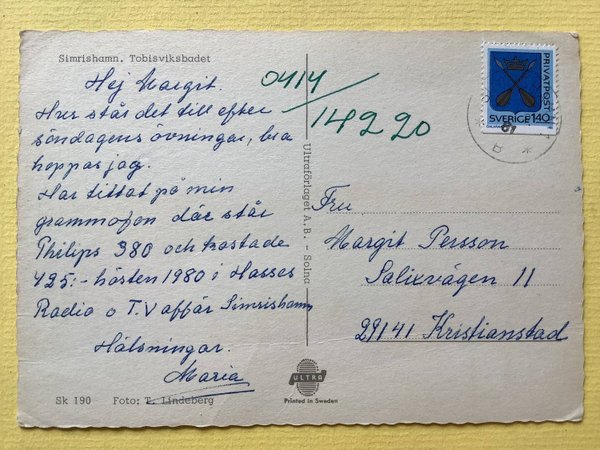 Simrishamn. Tobisviksbadet
Hej Margit.
Hur står det till efter
söndagens övningar, bra
hoppas jag.
Har tittat på min
grammofon där står
Philips 380 och kostade
425:- hösten 1980 i Hasses
Radio o T.V affär Simrishamn
Hälsningar.
Maria
0414/
14220
PRIVATPOST
SVERIGE 140
Fru
Margit Persson
Salixvägen 11
29141 Kristianstad
Ultraförlaget A.B. - Solna
ULTRA
Printed in Sweden
Sk 190 Foto: T. Lindeberg